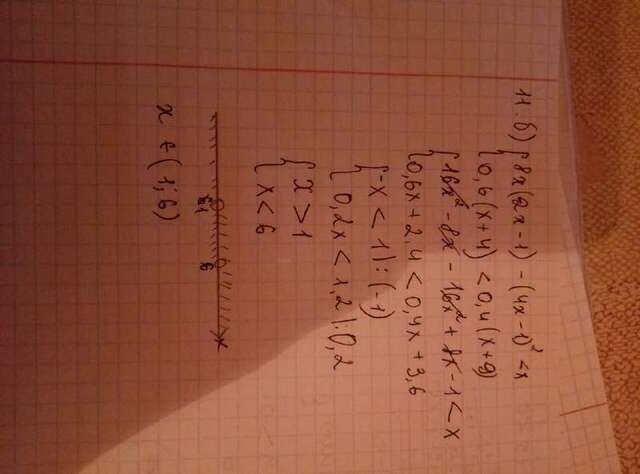 11.б) { 8x(2x-1) - (4x-1)² < x
{ 0,6(x+4) < 0,4(x+9)
{ 16x² - 8x - 16x² + 8x - 1 < x
{ 0,6x + 2,4 < 0,4x + 3,6
{ -x < 1 |:(-1)
{ 0,2x < 1,2 |:0,2
{ x > 1
{ x < 6
6 x
x ∈ (1; 6)